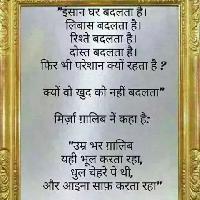 "इंसान घर बदलता है।
लिबास बदलता है।
रिश्ते बदलता है।
दोस्त बदलता है।
फिर भी परेशान क्यों रहता है ?
क्यों वो खुद को नहीं बदलता"
मिर्ज़ा ग़ालिब नें कहा है:
"उम्र भर ग़ालिब
यही भूल करता रहा,
धुल चेहरे पे थी,
और आइना साफ़ करता रहा"